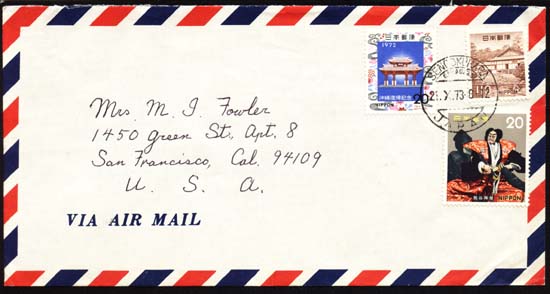 日本郵便
1972
沖縄復帰記念
NIPPON 20
日本郵便
21.X.73
JAPAN
20
NIPPON
Mrs. M. I. Fowler
1450 Green St, Apt. 8
San Francisco, Cal. 94109
U. S. A.
VIA AIR MAIL